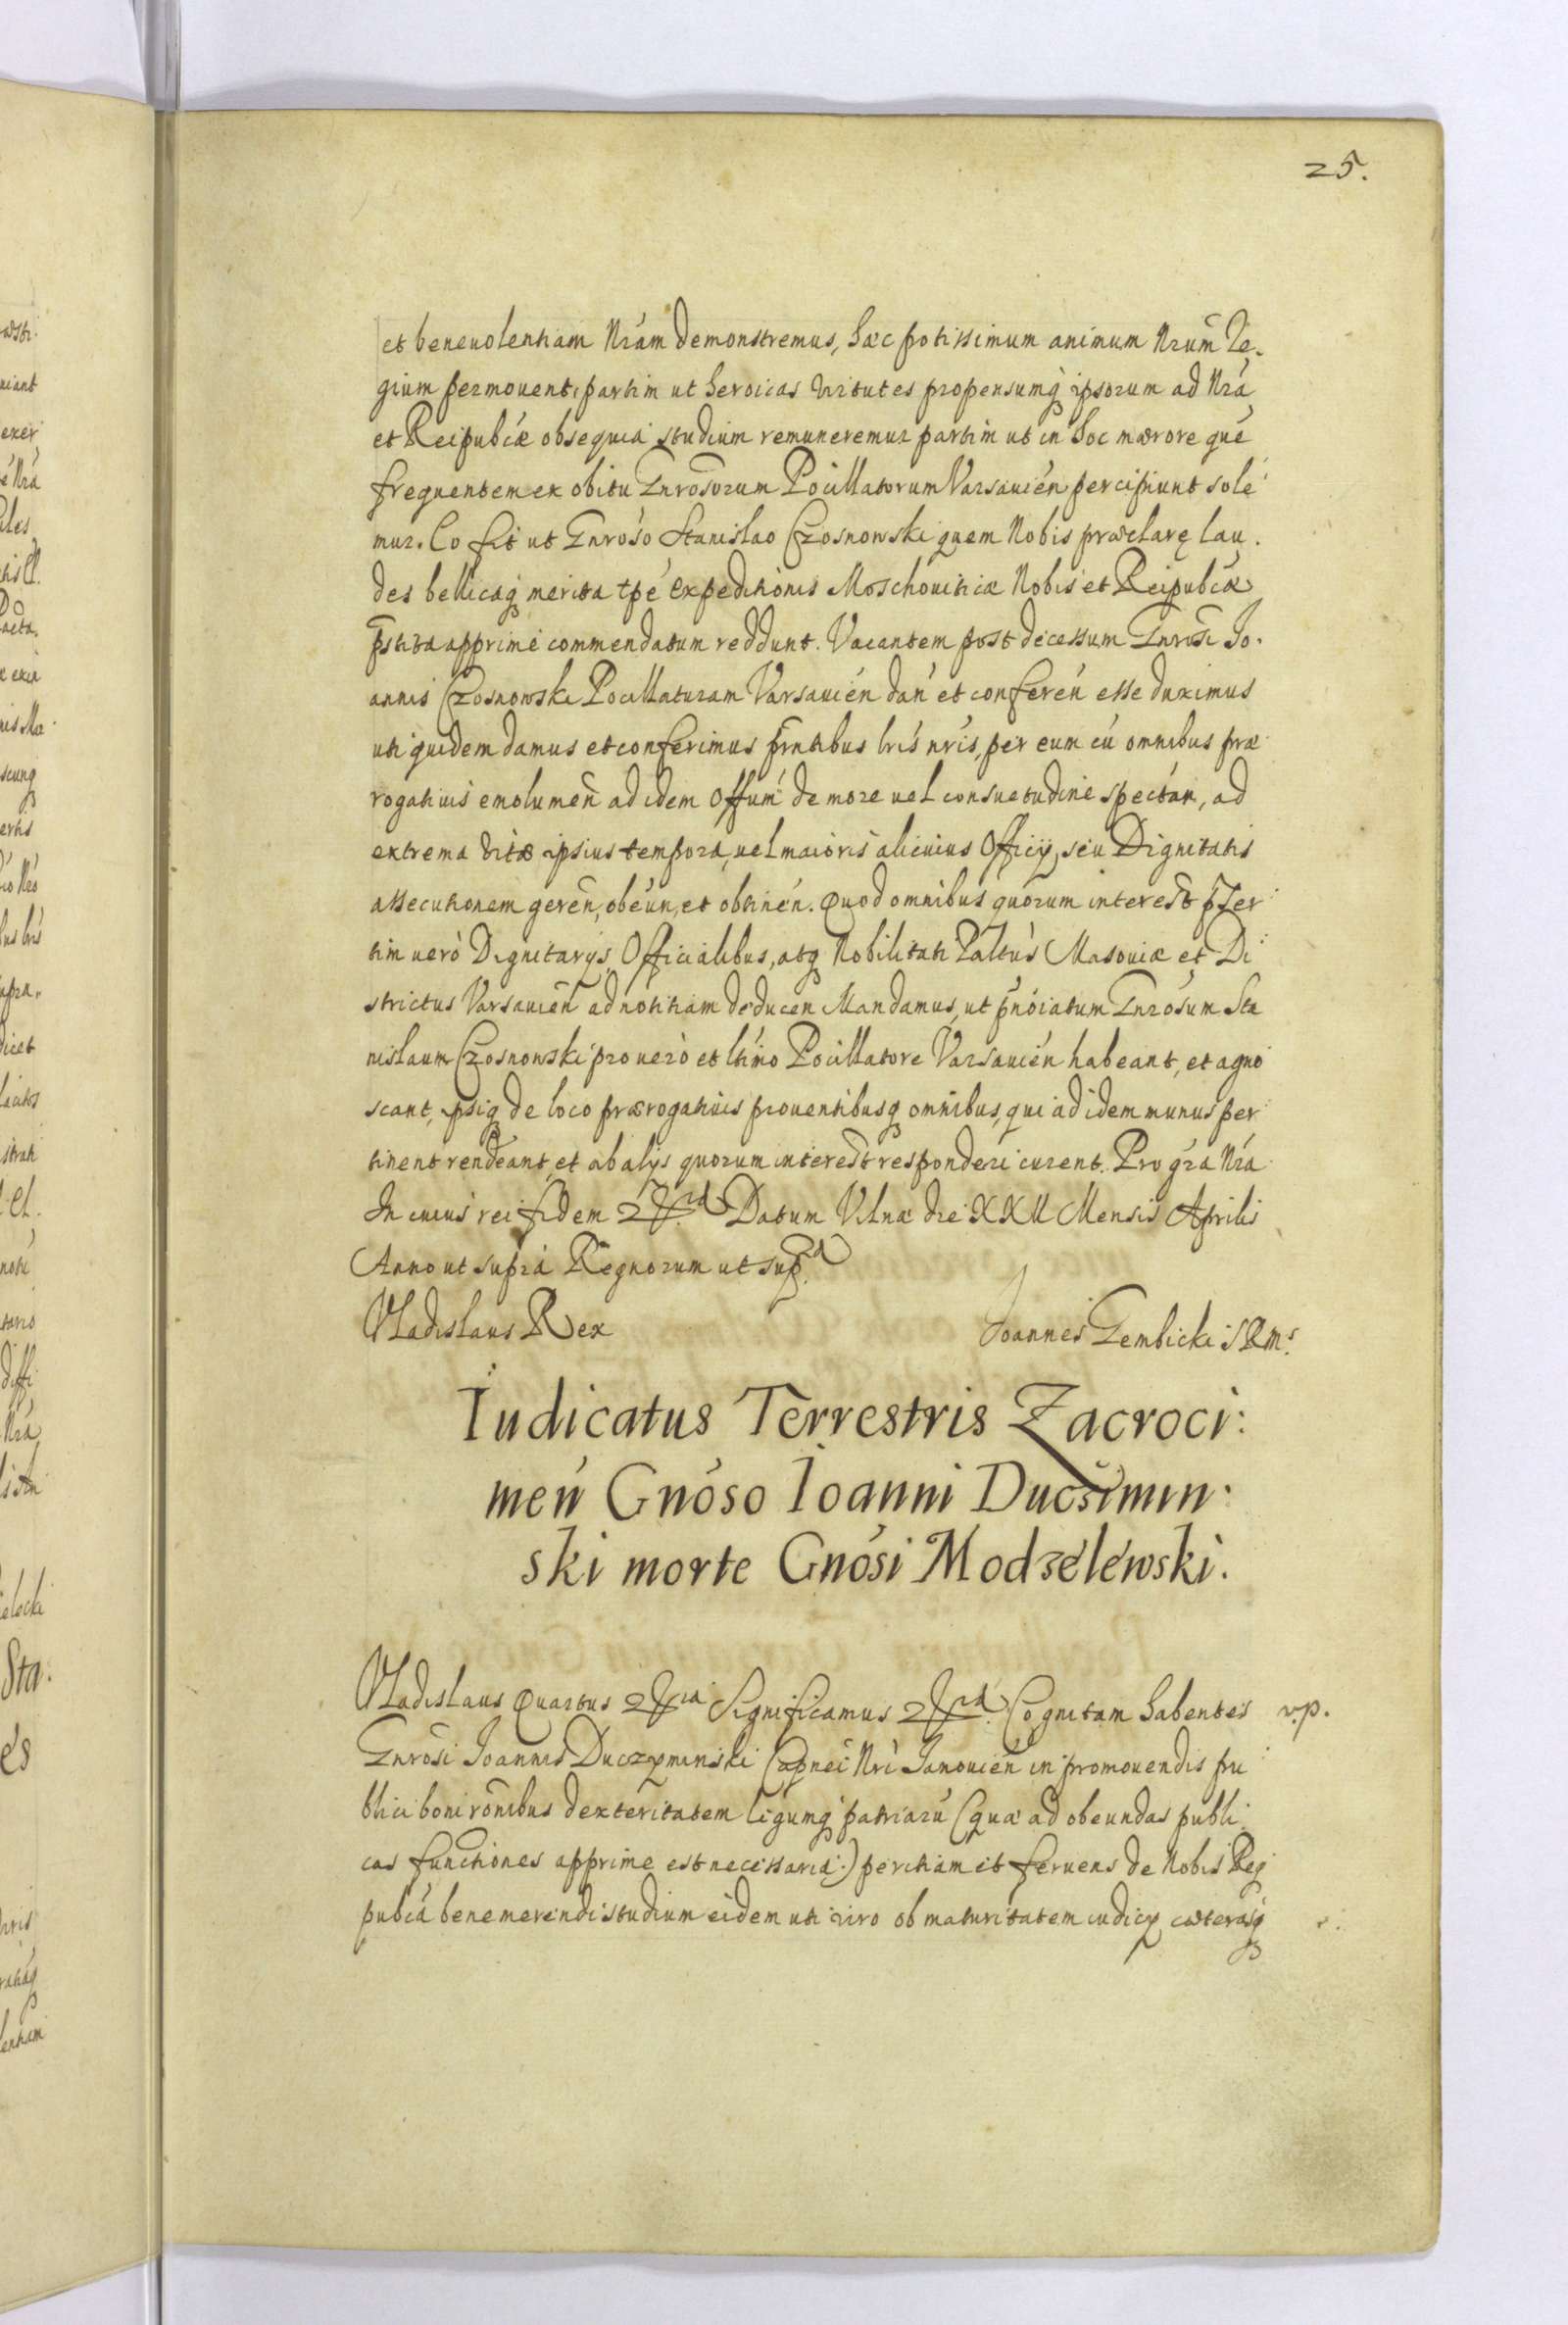 25.
et beneuolentiam Nram demonstremus, hæc potissimum animum Nrum Re.
gium permouent, partim ut heroicas virtutes propensumq ipsorum ad Nra
et Reipubcæ obsequia studium remuneremur partim ut in hoc mærore què
frequentem ex obitu Gnrosorum Pocillatorum Varsauien percipiunt sole
mur. Eo fit ut Gnroso Stanislao Czosnowski quem Nobis præclaræ lau.
des bellicaq merita tpe Expeditionis Moschouiticæ Nobis et Reipubcæ
pstita apprime commendatum reddunt. Vacantem post decessum Gnrosi Jo.
annis Czosnowski Pocillaturam Varsauien dan et conferen esse duximus
uti quidem damus et conferimus pntibus lris nris, per eum cu omnibus præ
rogatiuis emolumen ad idem Offum de more uel consuetudine spectan, ad
extrema vitæ ipsius tempora, uel maioris alicuius Officij, seu Dignitatis
assecutionem geren, obeun, et obtinen. Quod omnibus quorum interest pser
tim uerò Dignitarijs, Officialibus, atq Nobilitati Paltus Masouiæ et Di
strictus Varsauien ad notitiam deducen Mandamus, ut pnoiatum Gnrosum Sta
nislaum Czosnowski pro uerò et ltimo Pocillatore Varsauien habeant, et agno
scant, ipsiq de loco prærogatiuis prouentibusq omnibus, qui ad idem munus per
tinent rendeant, et ab alijs quorum interest responderi curent. Pro gra Nra
In cuius rei fidem &ra Datum Vilnæ die XXII Mensis Aprilis
Anno ut supra Regnorum ut supa
Vladislaus Rex Joannes Gembicki SRMs.
Iudicatus Terrestris Zacroci:
men Gnoso Ioanni Ducsimin:
ski morte Gnosi Modzelewski.
Vladislaus Quartus &ra Significamus &ra. Cognitam habentes v.p.
Gnrosi Joannis Duczyminski Capnei Nri Janouien in promouendis pu
blici boni ronibus dexteritatem legumq patriaru (quæ ad obeundas publi
cas functiones apprime est necessaria.) peritiam et feruens de Nobis Reiq
pubca benemerendi studium eidem uti viro ob maturitatem iudicij cæterasq